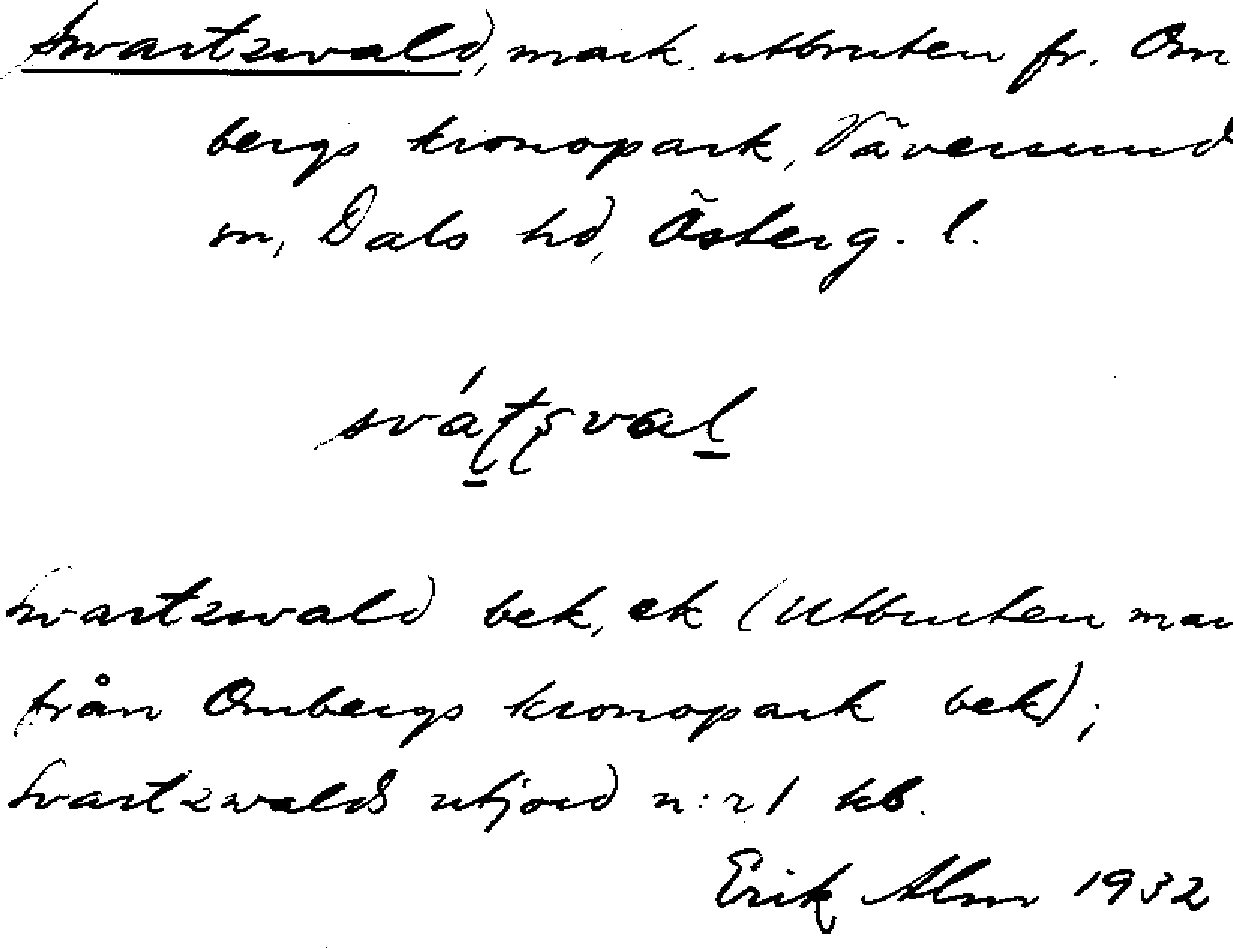 Svartzwald, mark. utbruten fr. Om
bergs kronopark, Väversund
sn, Dals hd, Österg. l.
sváʈʂval
Svartzwald bek, ek (Utbruten mar
från Ombergs kronopark bek);
Svartzwalds utjord n:r 1 kb.
Erik Alm 1932